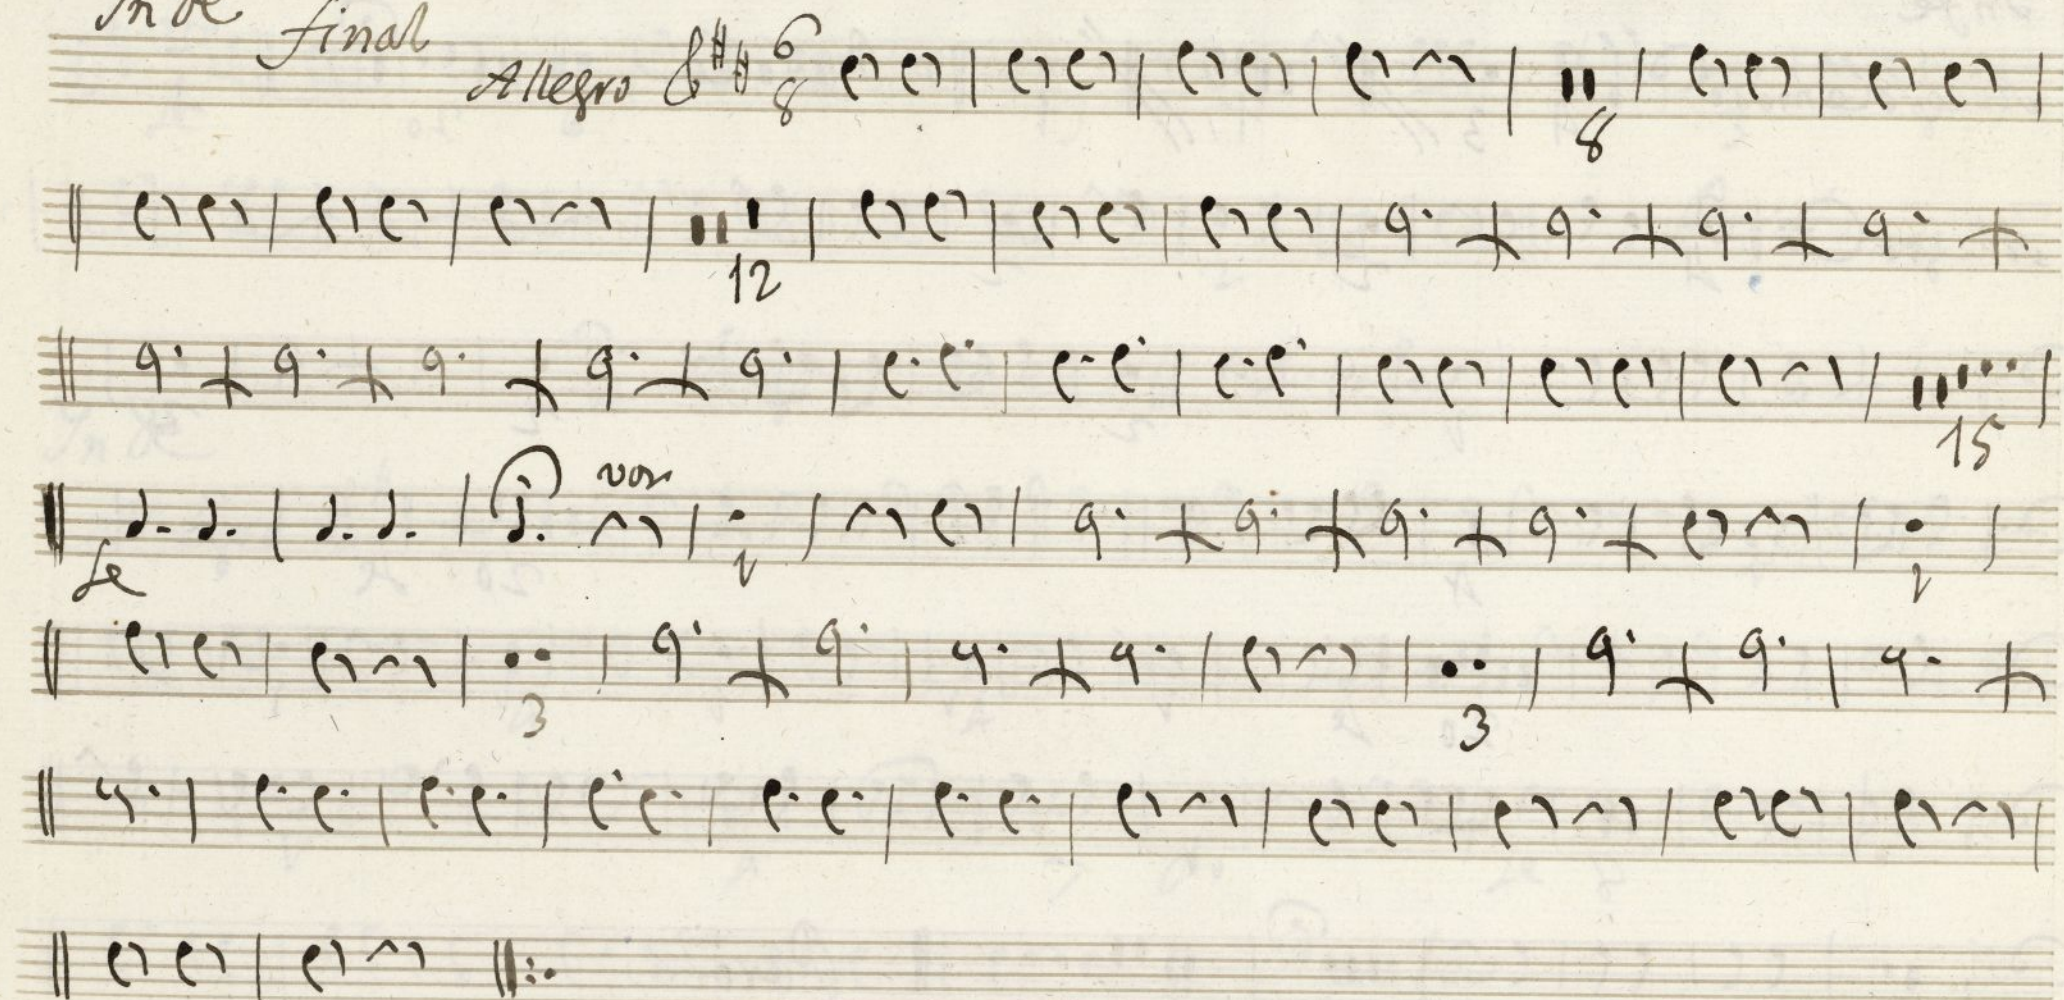 In De
final
Allegro 6 8
8
12
15
vor
3
3